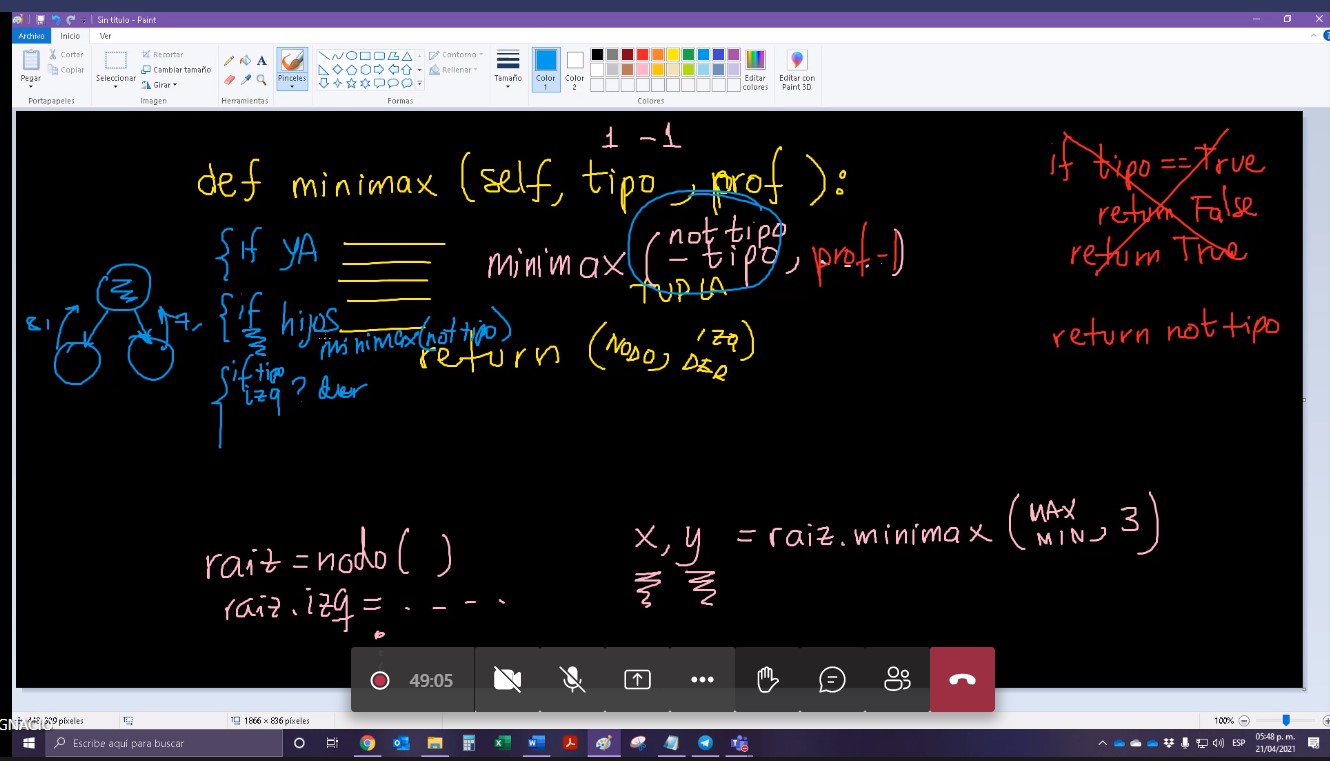 Sin título - Paint
Archivo Inicio Ver
Pegar
Cortar
Copiar
Portapapeles
Seleccionar
Recortar
Cambiar tamaño
Girar
Imagen
Herramientas
Pinceles
Contorno
Rellenar
Formas
Tamaño
Color 1
Color 2
Editar colores
Editar con Paint 3D
Colores
1 -1
def minimax (self, tipo, prof ):
minimax (not tipo
- tipo, prof-1)
TUPLA
return (NODO, izq
DER)
{if YA
{if hijos
minimax(not tipo)
{if tipo
izq ? der
if tipo == True
return False
return True
return not tipo
raiz = nodo ( )
raiz.izq = . - - . .
x, y = raiz.minimax (MAX
MIN, 3)
49:05
GNACIO
1866 × 836 píxeles
100%
Escribe aquí para buscar
ESP
05:48 p. m.
21/04/2021